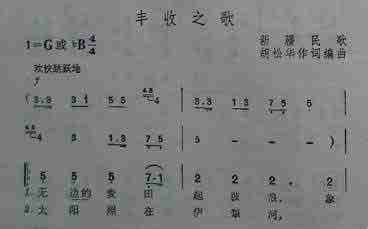 丰收之歌
1=G或♭B 4/4
新疆民歌
胡松华作词编曲
欢快踊跃地
f
( 3.3 3 1 5 5 | 3.3 1 3 7 5 5
3 1.3 7 5 | 5 - - - )
5 5 5 7·1 | 2 2 2 . 2
1.无边的麦田 起波浪，
2.太阳照在 伊犁河，